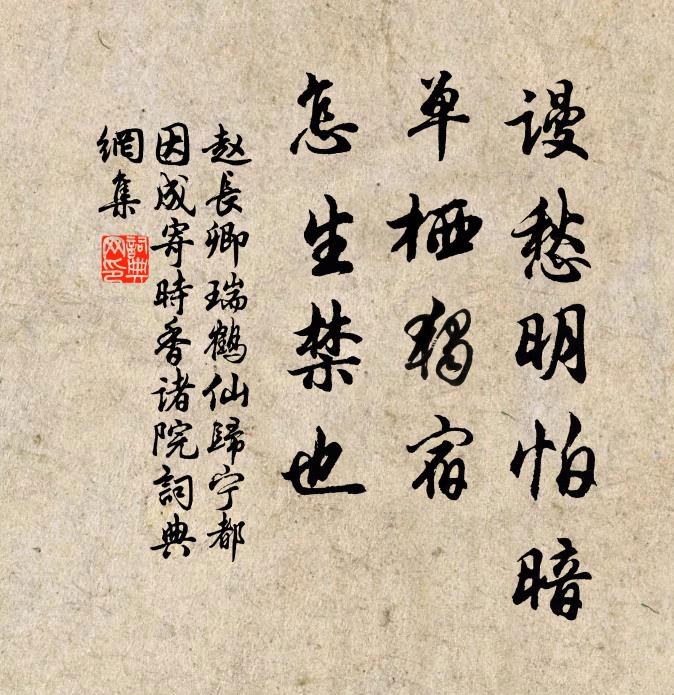 谩愁明怕暗
单栖独宿
怎生禁也
赵長卿瑞鹤仙歸宁都
因成寄時香诸院詞典
網集
詞典
网印